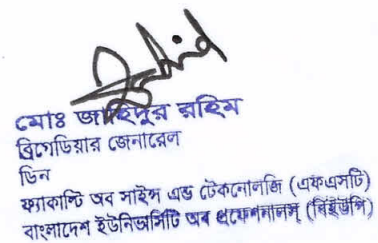 মোঃ জাহিদুর রহিম
ব্রিগেডিয়ার জেনারেল
ডিন
ফ্যাকাল্টি অব সাইন্স এন্ড টেকনোলজি (এফএসটি)
বাংলাদেশ ইউনিভার্সিটি অব প্রফেশনালস্ (বিইউপি)